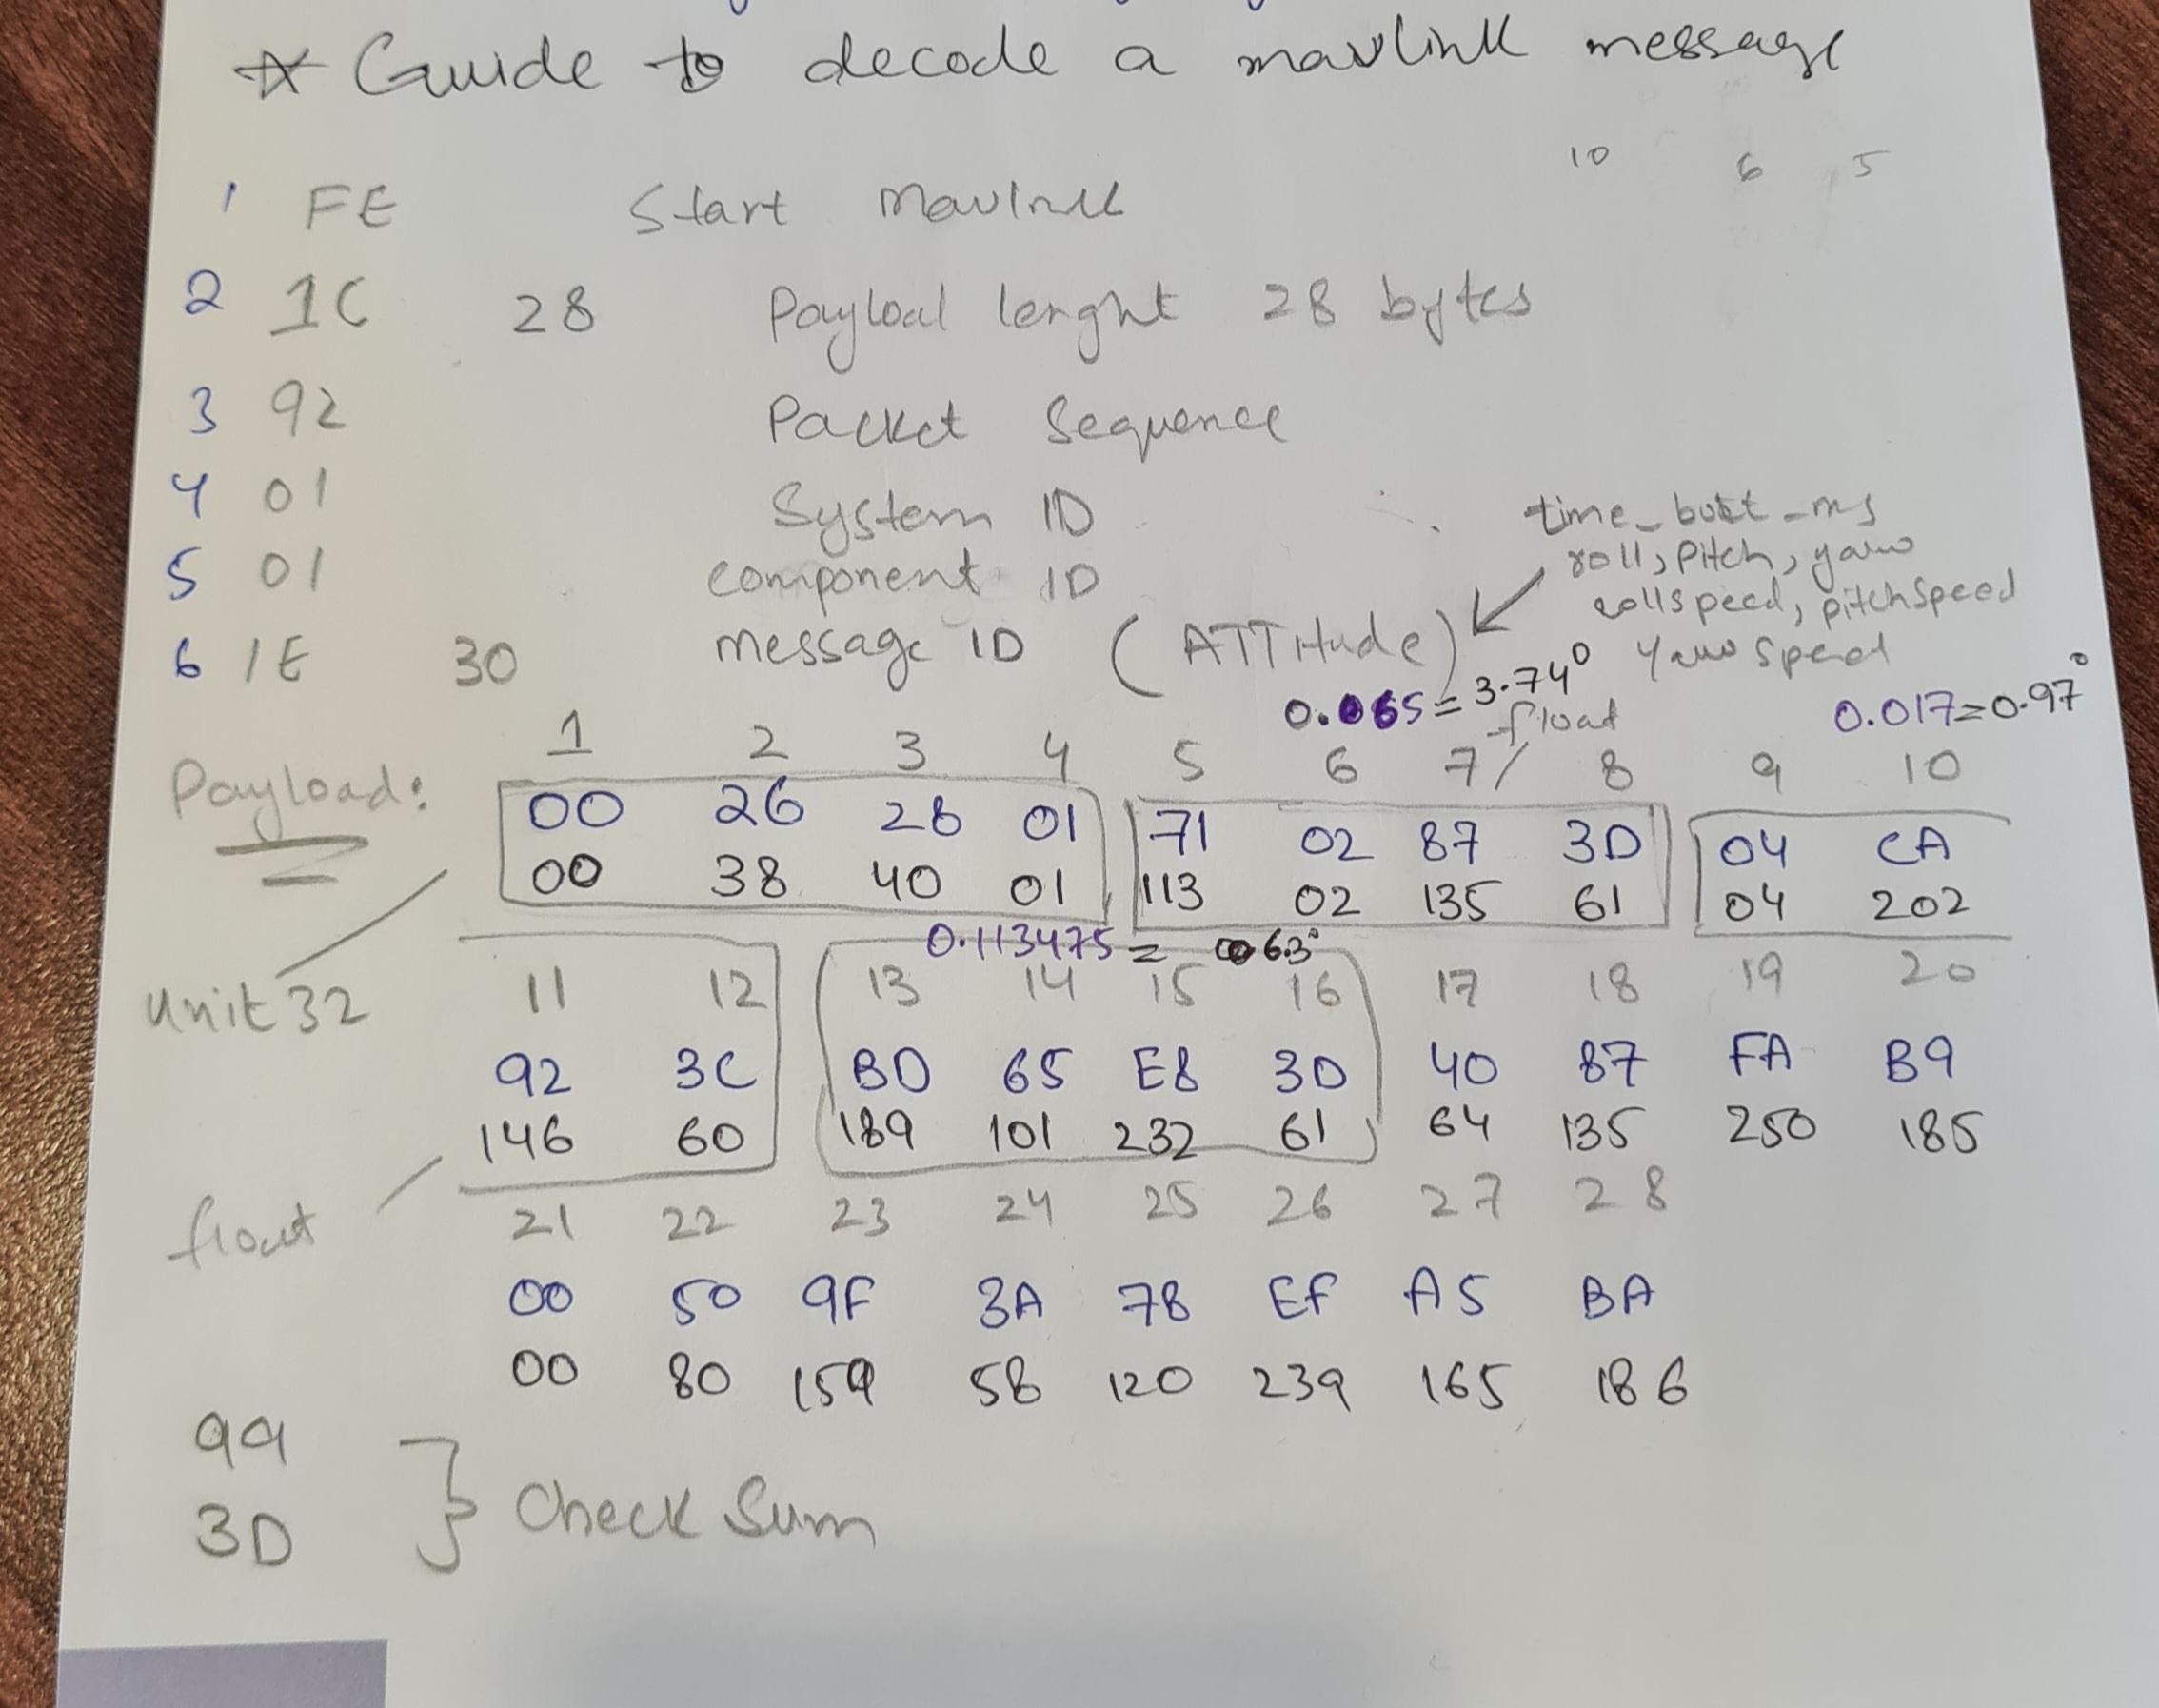 ☆ Guide to decode a mavlink message
10 6 5
1 FE Start Mavlink
2 1C 28 Payload lenght 28 bytes
3 92 Packet Sequence
4 01 System ID
5 01 component ID
6 1E 30 message ID (ATTitude)
time_boot_ms
roll, pitch, yaw
rollspeed, pitchspeed
yaw speed
0.065 = 3.74°
float
0.017 = 0.97°
Payload:
1 2 3 4 5 6 7 8 9 10
00 26 28 01 71 02 87 3D 04 CA
00 38 40 01 113 02 135 61 04 202
0.113475 = 6.3°
unit32
11 12 13 14 15 16 17 18 19 20
92 3C BD 65 E8 3D 40 87 FA B9
146 60 189 101 232 61 64 135 250 185
float
21 22 23 24 25 26 27 28
00 50 9F 3A 78 EF A5 BA
00 80 159 58 120 239 165 186
99
3D
} Check Sum